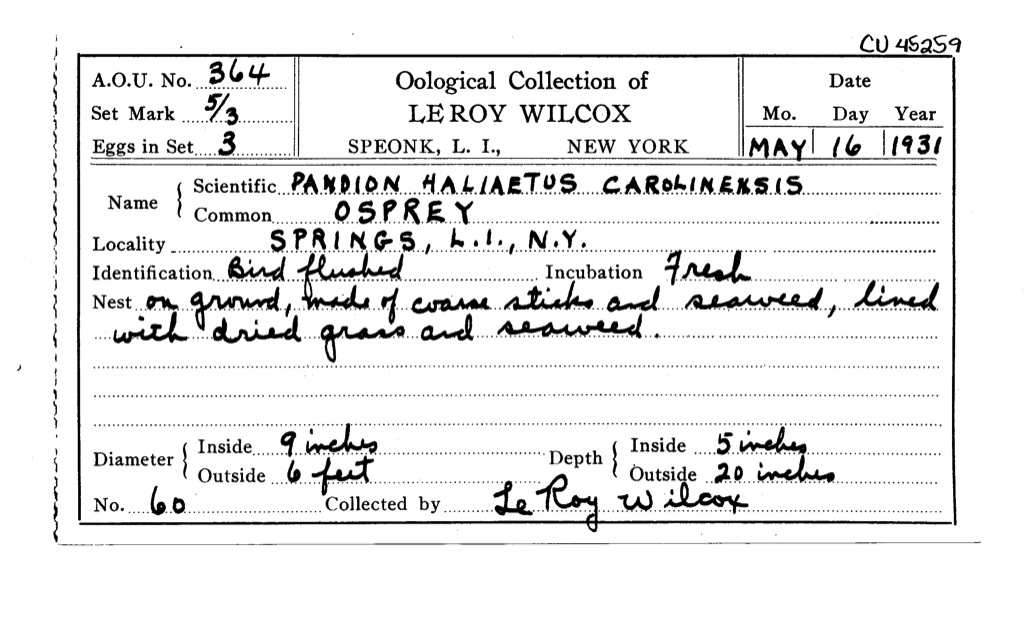 CU 45259
A.O.U. No. 364
Set Mark 5/3
Eggs in Set 3
Oological Collection of
LE ROY WILCOX
SPEONK, L. I., NEW YORK
Date
Mo. Day Year
MAY 16 1931
Name Scientific PANDION HALIAETUS CAROLINENSIS
Common OSPREY
Locality SPRINGS, L.I., N.Y.
Identification Bird flushed Incubation Fresh
Nest on ground, made of coarse sticks and seaweed, lined
with dried grass and seaweed.
Diameter Inside 9 inches Depth Inside 5 inches
Outside 6 feet Outside 20 inches
No. 60 Collected by Le Roy Wilcox